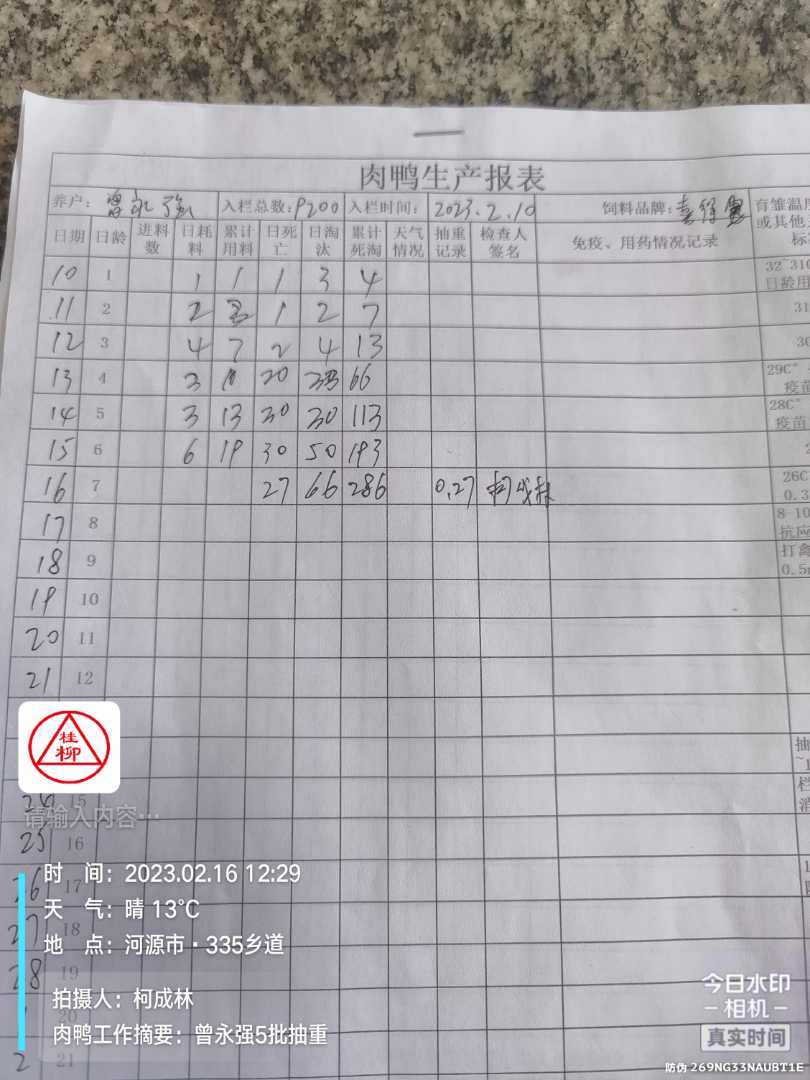 肉鸭生产报表
养户: 曾永强 入栏总数: 9200 入栏时间: 2023.2.10 饲料品牌: 育雏温度
或其他
日期 日龄 进料数 日耗料 累计用料 日死亡 日淘汰 累计死淘 天气情况 抽重记录 检查人签名 免疫、用药情况记录
10 1 1 1 1 3 4 32~31C
日龄用
11 2 2 1 2 7 31
12 3 4 7 2 4 13 30
13 4 3 20 66 29C°
疫苗
14 5 3 13 30 30 113 28C°
疫苗
15 6 6 19 30 50 193
16 7 27 66 286 0.27 柯成林 26C
0.3
17 8 8-10
抗应
18 9 打禽
0.5m
19 10
20 11
21 12
桂柳
24 15
请输入内容…
25 16
26 17
27 18
28 19
20
2 21
时 间: 2023.02.16 12:29
天 气: 晴 13℃
地 点: 河源市·335乡道
拍摄人: 柯成林
肉鸭工作摘要: 曾永强5批抽重
今日水印
-相机-
真实时间
防伪 269NG33NAUBT1E